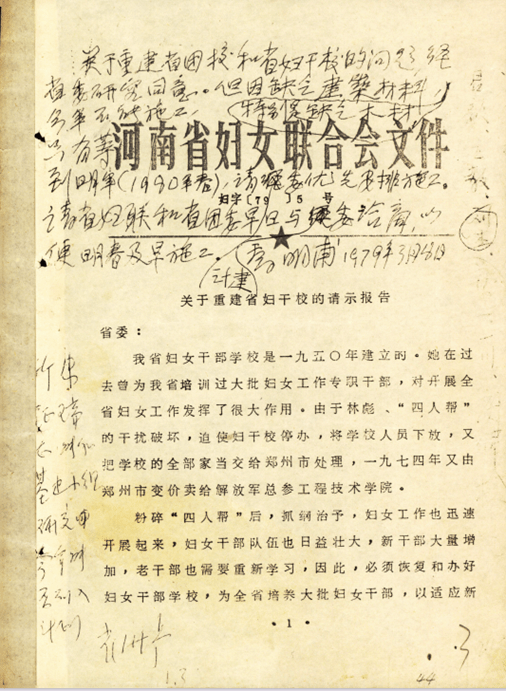 关于重建省团校和省妇干校的问题，经
省委研究同意。但因缺乏建筑材料，
今年不能施工。(特别是缺乏木材)
只有等
河南省妇女联合会文件
到明年(1980年春)，请建委优先安排施工。
妇字〔79〕5号
请省妇联和省团委早日与建委洽商，以
便明春及早施工。
计建
1979年3月18日
关于重建省妇干校的请示报告
省委：
我省妇女干部学校是一九五〇年建立的。她在过
去曾为我省培训过大批妇女工作专职干部，对开展全
省妇女工作发挥了很大作用。由于林彪、“四人帮”
的干扰破坏，迫使妇干校停办，将学校人员下放，又
把学校的全部家当交给郑州市处理，一九七四年又由
郑州市变价卖给解放军总参工程技术学院。
粉碎“四人帮”后，抓纲治予，妇女工作也迅速
开展起来，妇女干部队伍也日益壮大，新干部大量增
加，老干部也需要重新学习，因此，必须恢复和办好
妇女干部学校，为全省培养大批妇女干部，以适应新
·1·
3
1.3
44